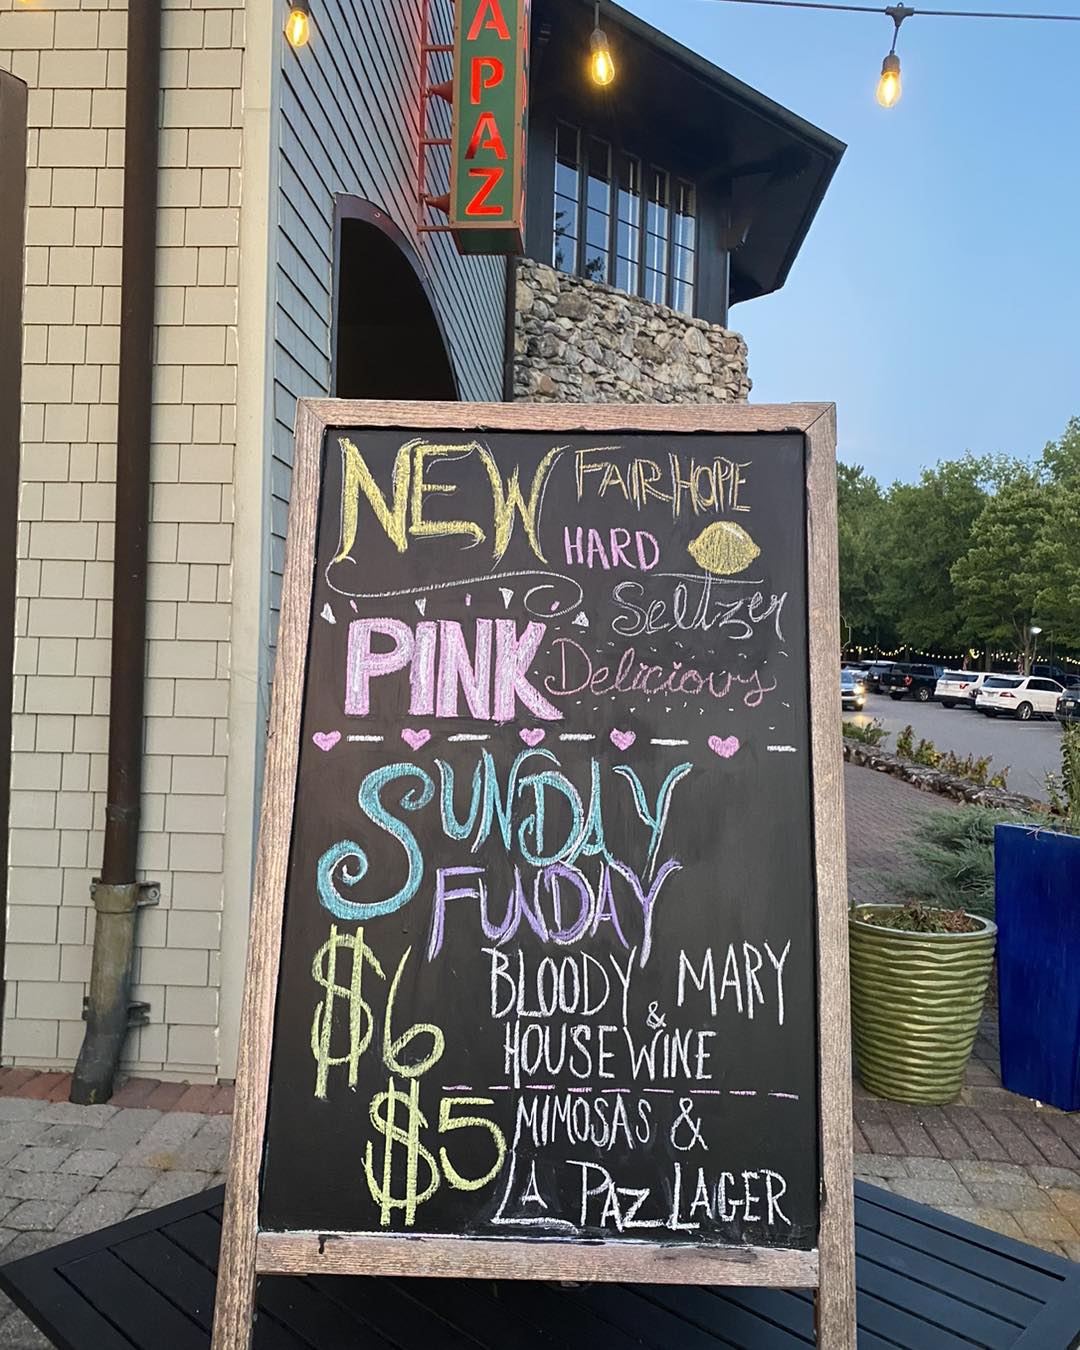 APAZ
NEW FAIRHOPE
HARD
Seltzer
PINK Delicious
SUNDAY
FUNDAY
$6 BLOODY MARY
&
HOUSE WINE
$5 MIMOSAS &
LA PAZ LAGER